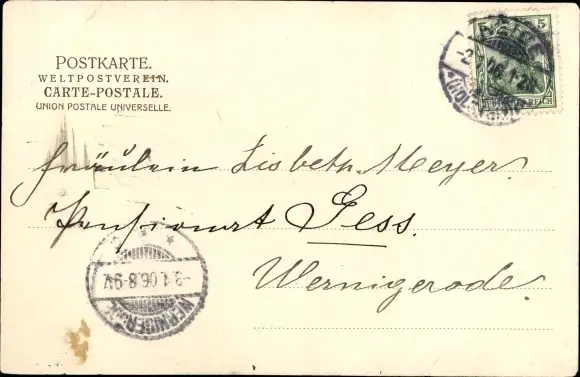 POSTKARTE.
WELTPOSTVEREIN.
CARTE-POSTALE.
UNION POSTALE UNIVERSELLE.
5 5
REICH
Fräulein Lisbeth Meyer.
Pensionat Gess.
Wernigerode.
-3.1.06.8-9V.
WERNIGERODE